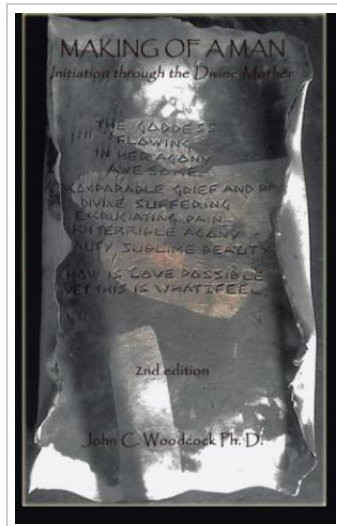 MAKING OF A MAN
Initiation through the Divine Mother
THE GODDESS
FLOWING
IN HER AGONY
AWESOME
INCOMPARABLE GRIEF AND
DIVINE SUFFERING
EXCRUCIATING PAIN
SUCH TERRIBLE AGONY
BEAUTY, SUBLIME BEAUTY
HOW IS LOVE POSSIBLE
YET THIS IS WHAT I FEEL
2nd edition
John C. Woodcock Ph. D.